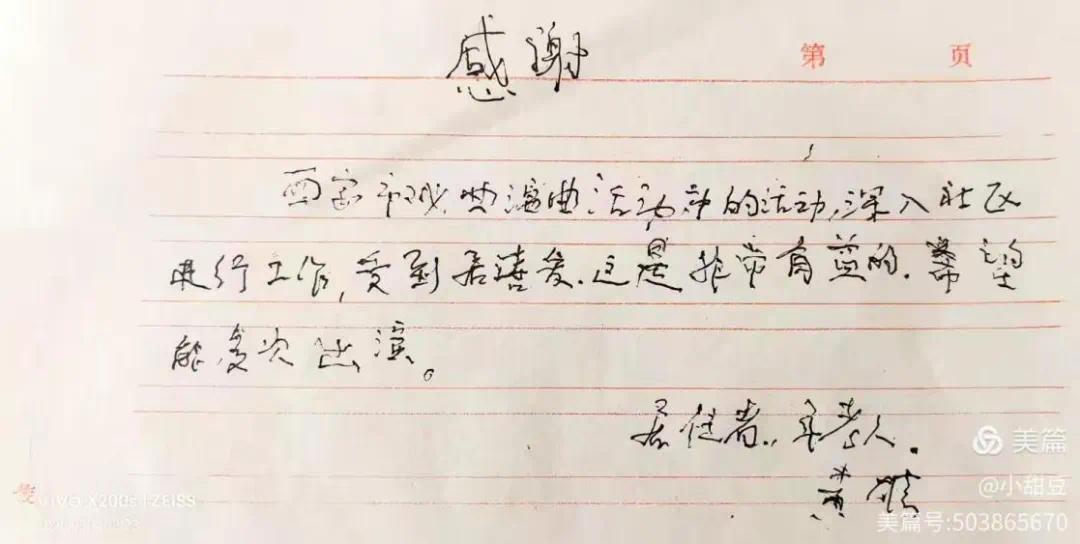 感谢
第 页
西安市戏曲演曲活动中的活动,深入社区
进行工作,受到居喜爱.这是非常有益的.希望
能多次出演。
居住者.年老人.
黄
美篇
@小甜豆
美篇号:503865670
vivo X200s | ZEISS